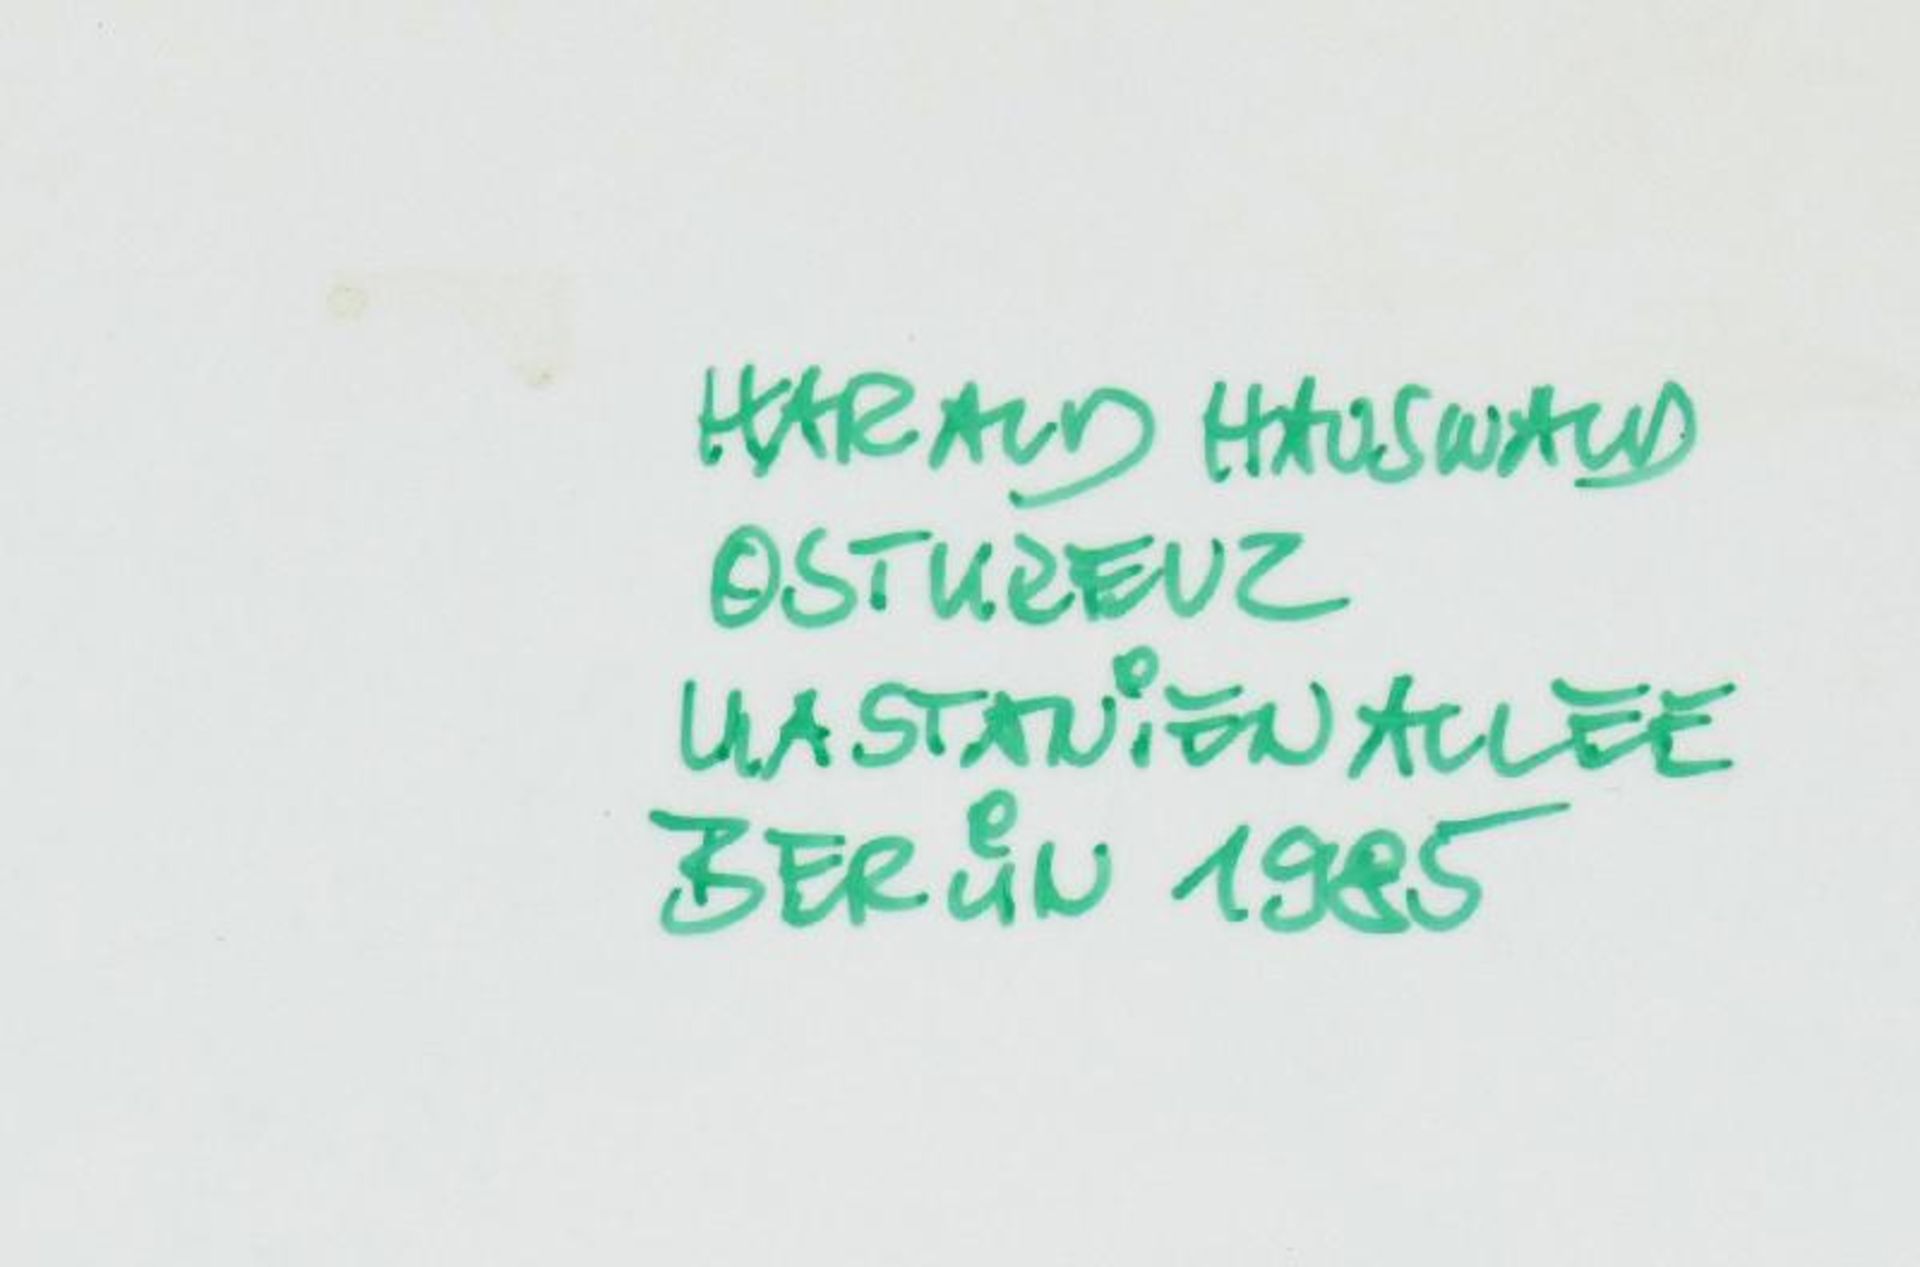 HARALD HAUSWALD
OSTKREUZ
KASTANiENALLEE
BERLiN 1985